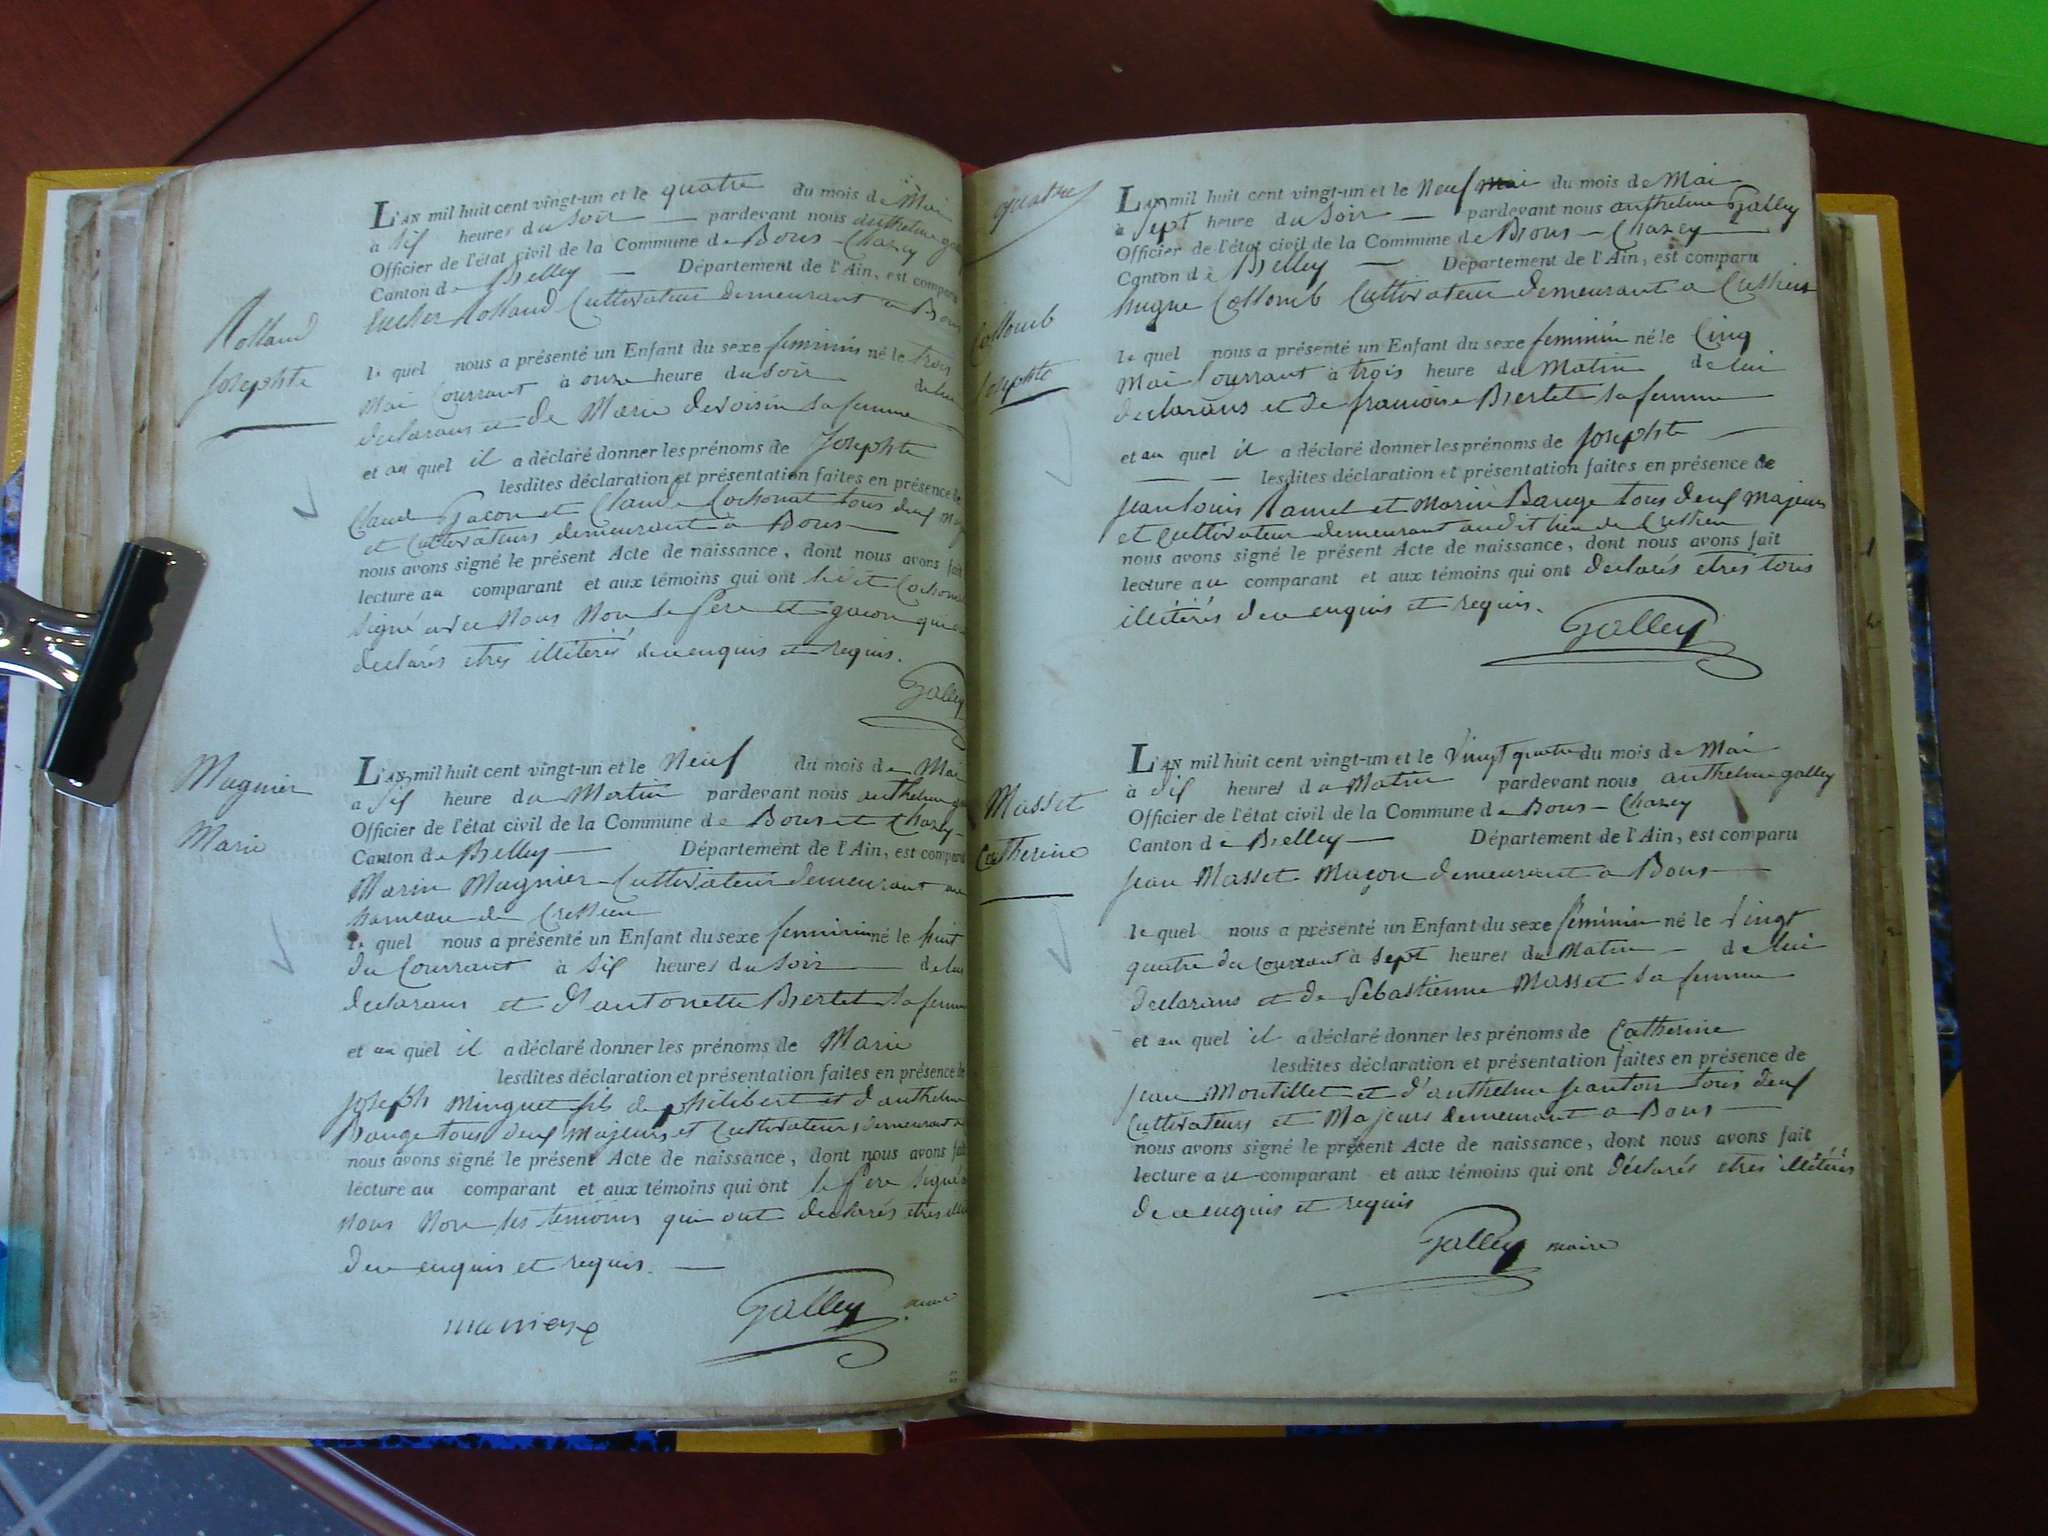 L'AN mil huit cent vingt-un et le quatre du mois de Mai
à six heures du soir pardevant nous anthelme
Officier de l'état civil de la Commune de Bons - Chazey
Canton de Belley — Département de l'Ain, est comparu
Rolland Cultivateur demeurant a Bons
Rolland
Josephte
le quel nous a présenté un Enfant du sexe feminin né le trois
Mai Courrant à onze heure du soir de lui
declarans et de Marie devoisin sa femme
et au quel il a déclaré donner les prénoms de Josephte
lesdites déclaration et présentation faites en présence de
Claude Gacon et Claude Cochonat tous deux
et Cultivateurs demeurant a Bons
nous avons signé le présent Acte de naissance, dont nous avons fait
lecture au comparant et aux témoins qui ont ledit
signé avec nous non le pere et gacon qui
declarés etres illitérés de ce enquis et requis.
Galley
Magnier
Marie
L'AN mil huit cent vingt-un et le Neuf du mois de Mai
à six heure du Matin pardevant nous anthelme
Officier de l'état civil de la Commune de Bons et Chazey
Canton de Belley — Département de l'Ain, est comparu
Marin Magnier Cultivateur demeurant au
hameau de Cressieu
le quel nous a présenté un Enfant du sexe feminin né le huit
du Courrant à six heures du soir — de lui
declarans et d'antonette Bertet sa femme
et au quel il a déclaré donner les prénoms de Marie
lesdites déclaration et présentation faites en présence de
Joseph Minguet fils de philibert et d'anthelme
Bauge tous deux Majeurs et Cultivateurs demeurant a
nous avons signé le présent Acte de naissance, dont nous avons fait
lecture au comparant et aux témoins qui ont le pere signé
nous non les temoins qui ont declarés etres
de ce enquis et requis. —
Galley maire
quatre
L'AN mil huit cent vingt-un et le Neuf mai du mois de Mai
à Sept heure du Soir — pardevant nous anthelme Galley
Officier de l'état civil de la Commune de Bons - Chazey
Canton de Belley — Département de l'Ain, est comparu
hugue Collomb Cultivateur demeurant a Cressieu
Collomb
Josephte
le quel nous a présenté un Enfant du sexe feminin né le Cinq
Mai Courrant à trois heure du Matin de lui
declarans et de francoise Bertet sa femme
et au quel il a déclaré donner les prénoms de Josephte —
lesdites déclaration et présentation faites en présence de
jean louis Ramel et Marin Bauge tous deux Majeurs
et Cultivateur demeurant audit lieu de Cressieu
nous avons signé le présent Acte de naissance, dont nous avons fait
lecture au comparant et aux témoins qui ont declarés etres tous
illitérés de ce enquis et requis.
Galley
Masset
Catherine
L'AN mil huit cent vingt-un et le Vingt quatre du mois de Mai
à six heures du Matin pardevant nous anthelme galley
Officier de l'état civil de la Commune de Bons - Chazey
Canton de Belley — Département de l'Ain, est comparu
Jean Masset Maçon demeurant a Bons —
le quel nous a présenté un Enfant du sexe féminin né le Vingt
quatre du courrant à sept heures du Matin — de lui
declarans et de Sebastienne Masset sa femme
et au quel il a déclaré donner les prénoms de Catherine
lesdites déclaration et présentation faites en présence de
jean Montillet et d'anthelme jeanton tous deux
Cultivateurs et Majeurs demeurant a Bons —
nous avons signé le présent Acte de naissance, dont nous avons fait
lecture au comparant et aux témoins qui ont déclarés etres illitérés
de ce enquis et requis
Galley maire